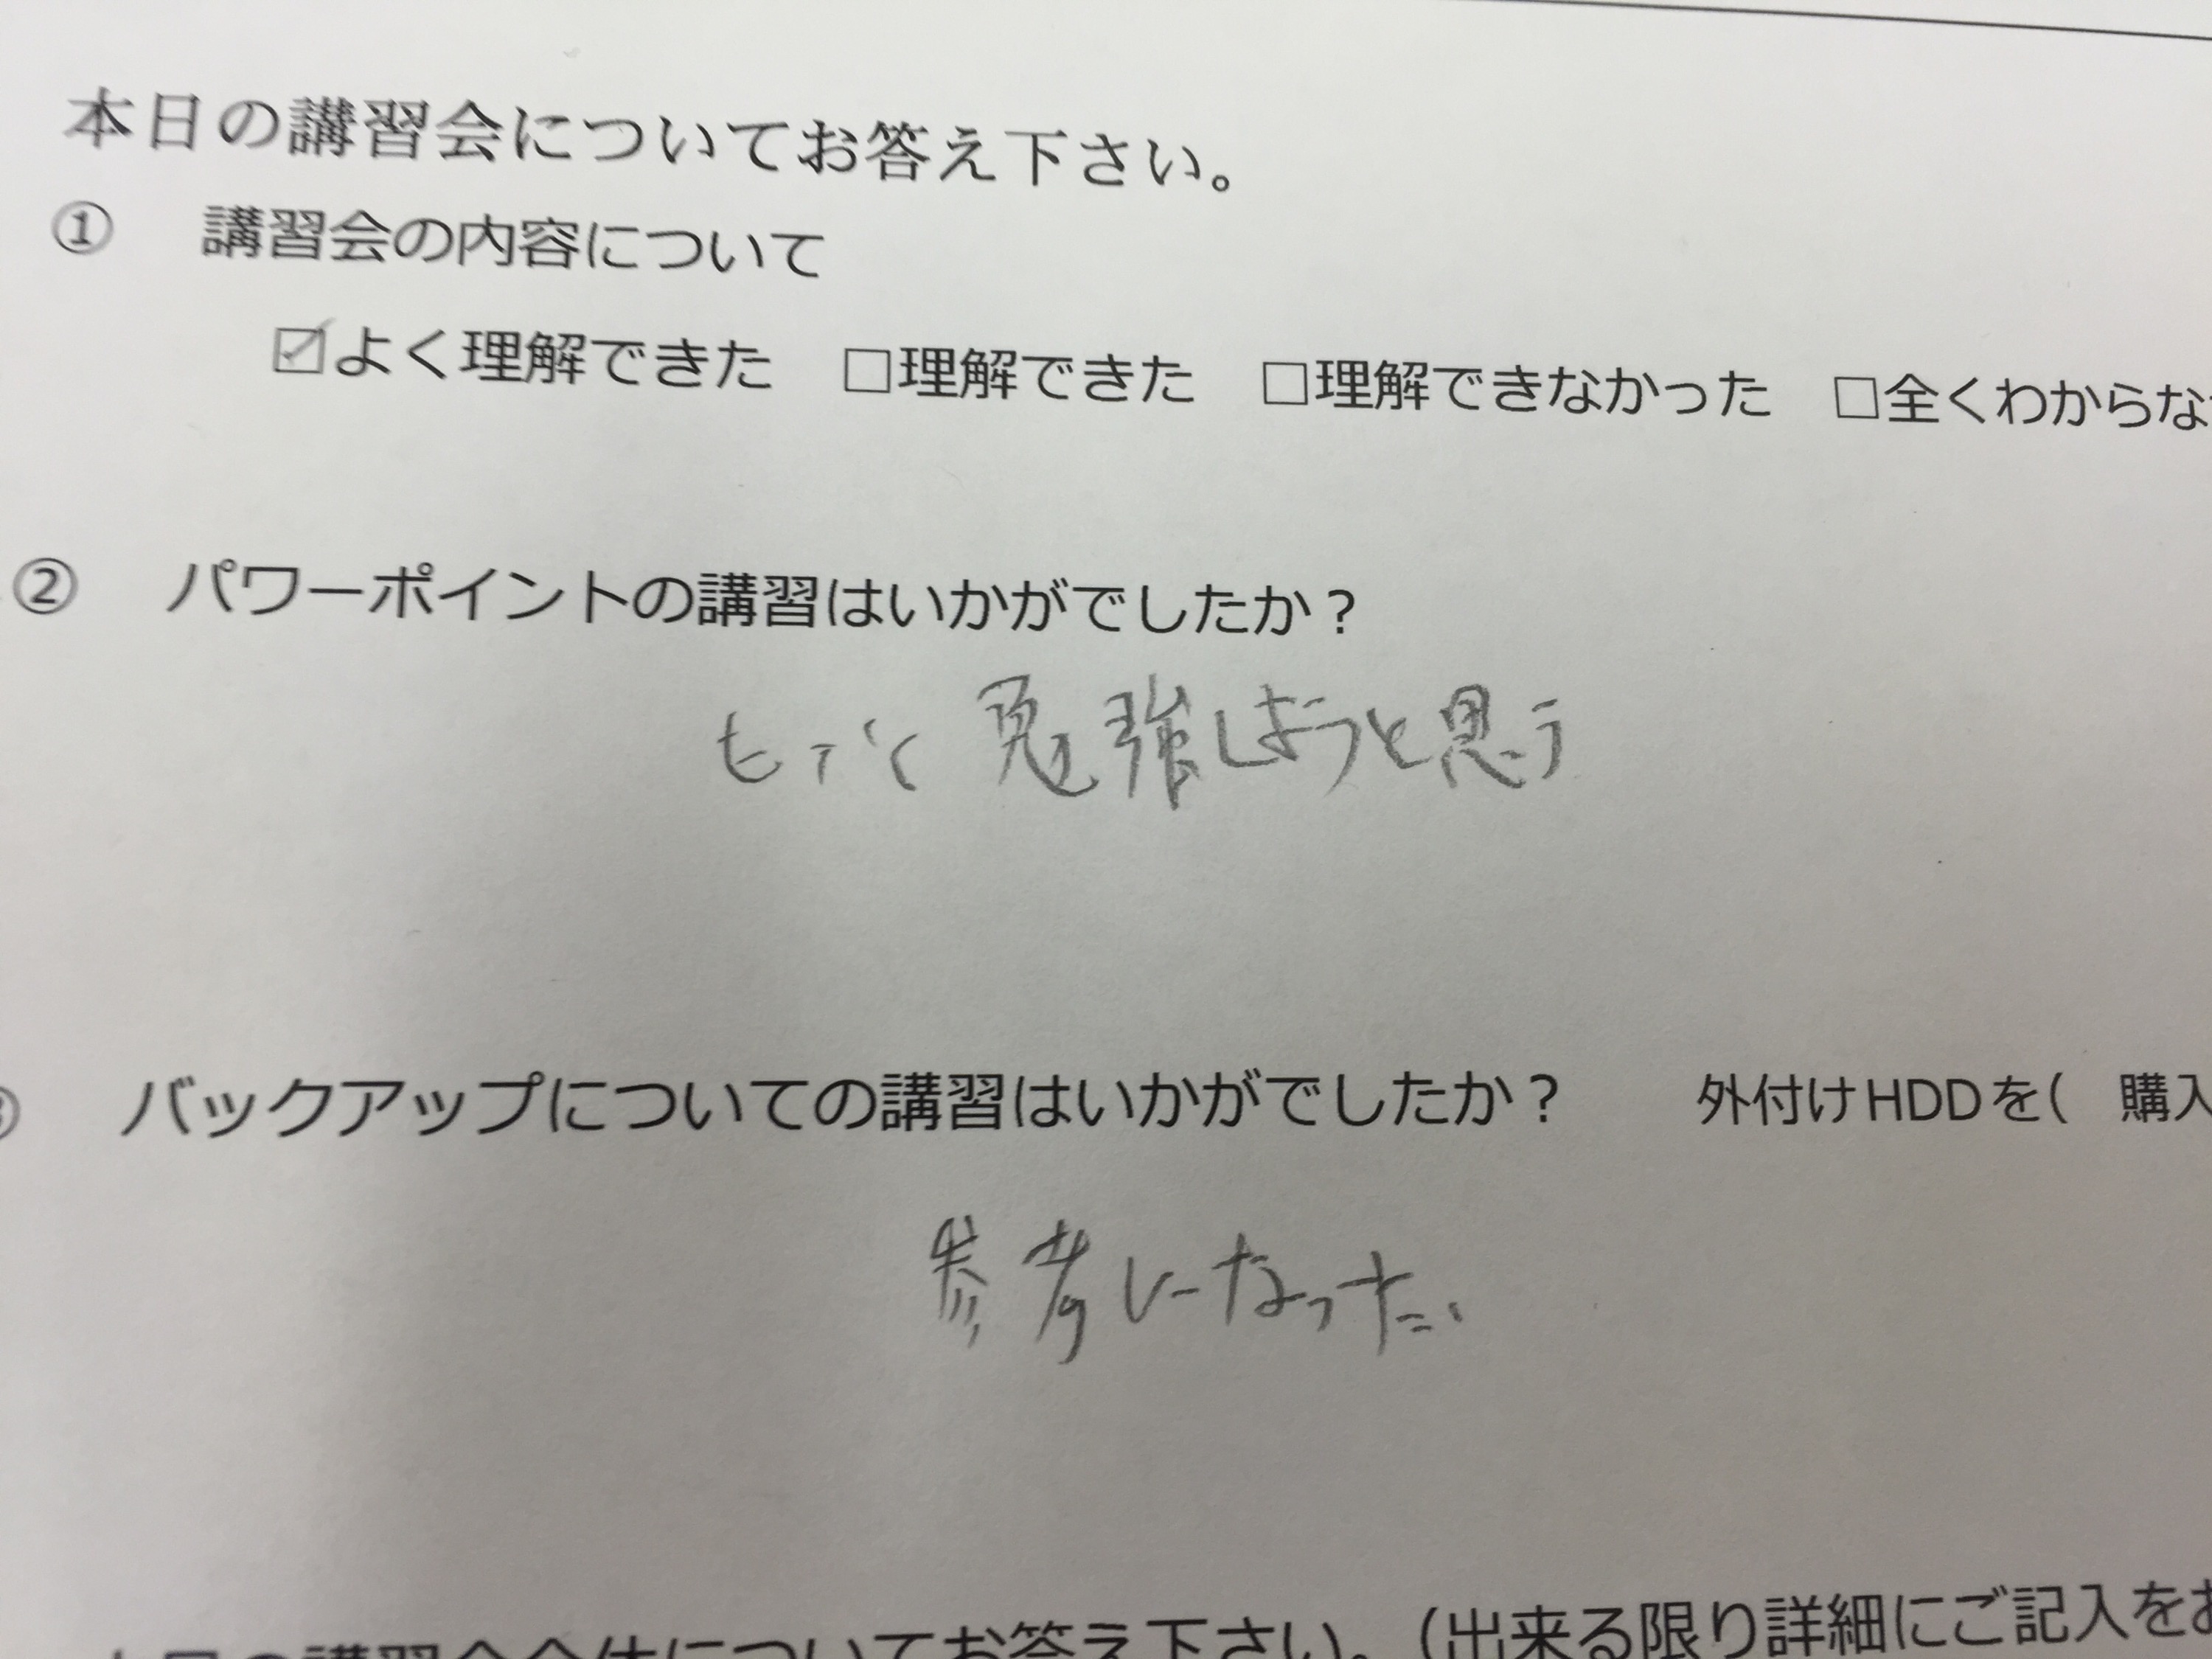 本日の講習会についてお答え下さい。
① 講習会の内容について
☑よく理解できた □理解できた □理解できなかった □全くわからな
② パワーポイントの講習はいかがでしたか？
もっと勉強しようと思う
③ バックアップについての講習はいかがでしたか？ 外付けHDDを( 購入
参考になった。
本日の講習会全体についてお答え下さい。（出来る限り詳細にご記入をお